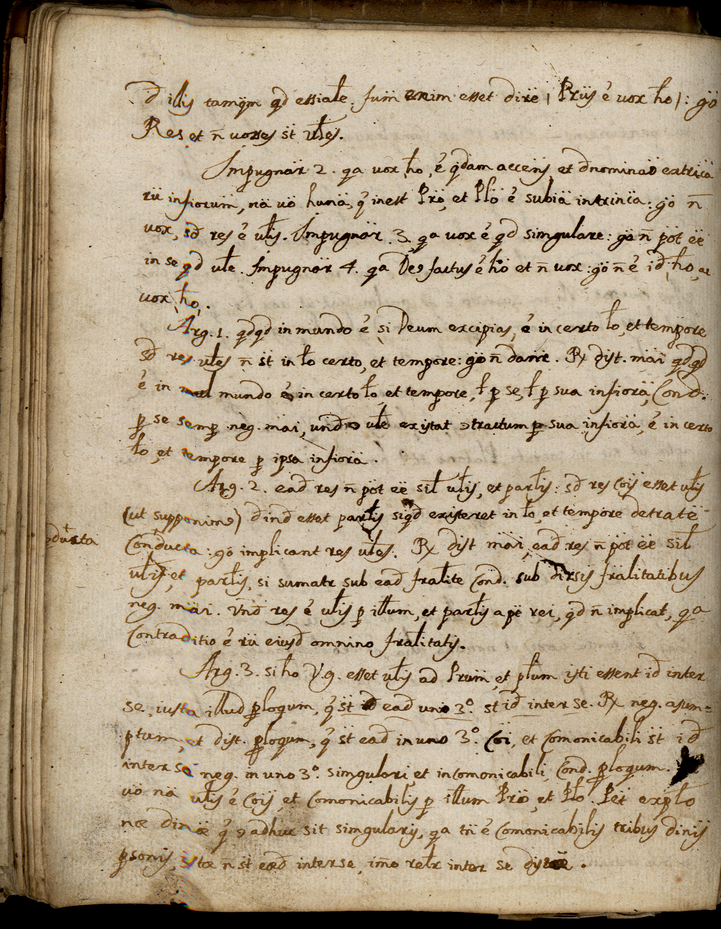 d illis tamqm qd essiale: sum enim esset dire (Prus é vox ho): gò
Res et ñ voces st vłes.
Impugnar 2. qa vox ho, é qdam accens, et dnominaõ extrica
rũ infiorum, nã vò huna, q inest Pro, et Plo é subiã intrinca: gò ñ
vox, sd res é vłis. Impugnar 3. qa vox é qd singulare: gò ñ pot eé
in se qd vłe. Impugnar 4. qa De9 factus é hõ et ñ vox: gò ñ é id, ho, ac
vox ho.
Arg. 1. qdqd in mundo é si Deum excipias, é in certo ło, et tempore
sd res vłes ñ st in ło certo, et tempore: gò ñ dantr. Rx dist. mai qdqd
é in mundo é in certo ło, et tempore, ł p se, ł p sua infiora Cond:
p se semp neg. mai, und vłe existat tractum p sua infiora, é in certo
ło, et tempore p ipsa infiora.
Arg. 2. ead res ñ pot eé sił vłis, et parłis: sd res Cois esset vłis
(ut supponim9) dind esset parłis siqd existeret in ło, et tempore detratè
Conducta: gò implicant res vłes. Rx dist mai, ead res ñ pot eé sił
vłis, et parłis, si sumatr sub ead fralite Cond. sub dirsis fralitatibus
neg. mai. Und res é vłis p illum, et parłis a pte rei, qd ñ implicat, qa
Contraditio é rũ eiusd omnino fralitatis.
Arg. 3. si ho V.g. esset vłis ad Prum et płum isti essent id inter
se, iusta illud plogum, q st ead uno 3.º st id inter se. Rx neg. asum=
ptum, et dist. plogum, q st ead in uno 3.º Coi, et Comonicabili st id
inter se neg. in uno 3.º singulari, et incomonicabili Cond. plogum.
vò nã vłis é Cois, et Comonicabilis p illum Pro, et Plo. Pet explo
næ dinæ q adhuc sit singularis, qa tñ é Comonicabilis tribus dinis
psonis, istæ ñ st eæd inter se, imo rełr inter se